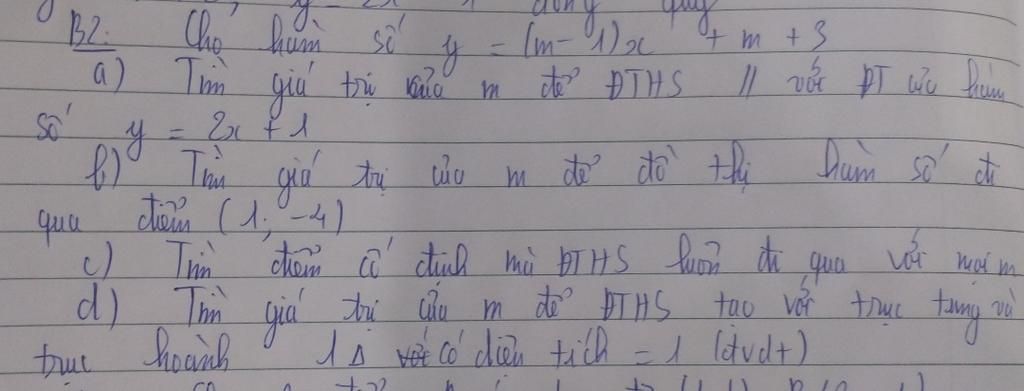 B2. Cho hàm số y = (m-1)x + m + 3
a) Tìm giá trị của m để ĐTHS // với ĐT của hàm
số y = 2x + 1
b) Tìm giá trị của m để đồ thị hàm số đi
qua điểm (1; -4)
c) Tìm điểm cố định mà ĐTHS luôn đi qua với mọi m
d) Tìm giá trị của m để ĐTHS tạo với trục tung và
trục hoành 1 Δ có diện tích = 1 (đvdt)